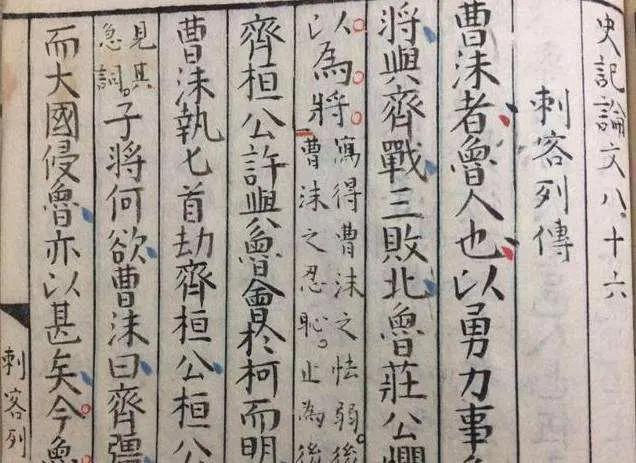 史記論文八十六
刺客列傳
曹沫者魯人也以勇力事
將與齊戰三敗北魯莊公懼
以為將
寫得曹沫之怯弱。後
曹沫之忍恥。止為後
齊桓公許與魯會於柯而
曹沫執匕首劫齊桓公桓公
見其
急詞。
子將何欲曹沫曰齊彊
而大國侵魯亦以甚矣今魯
刺客列